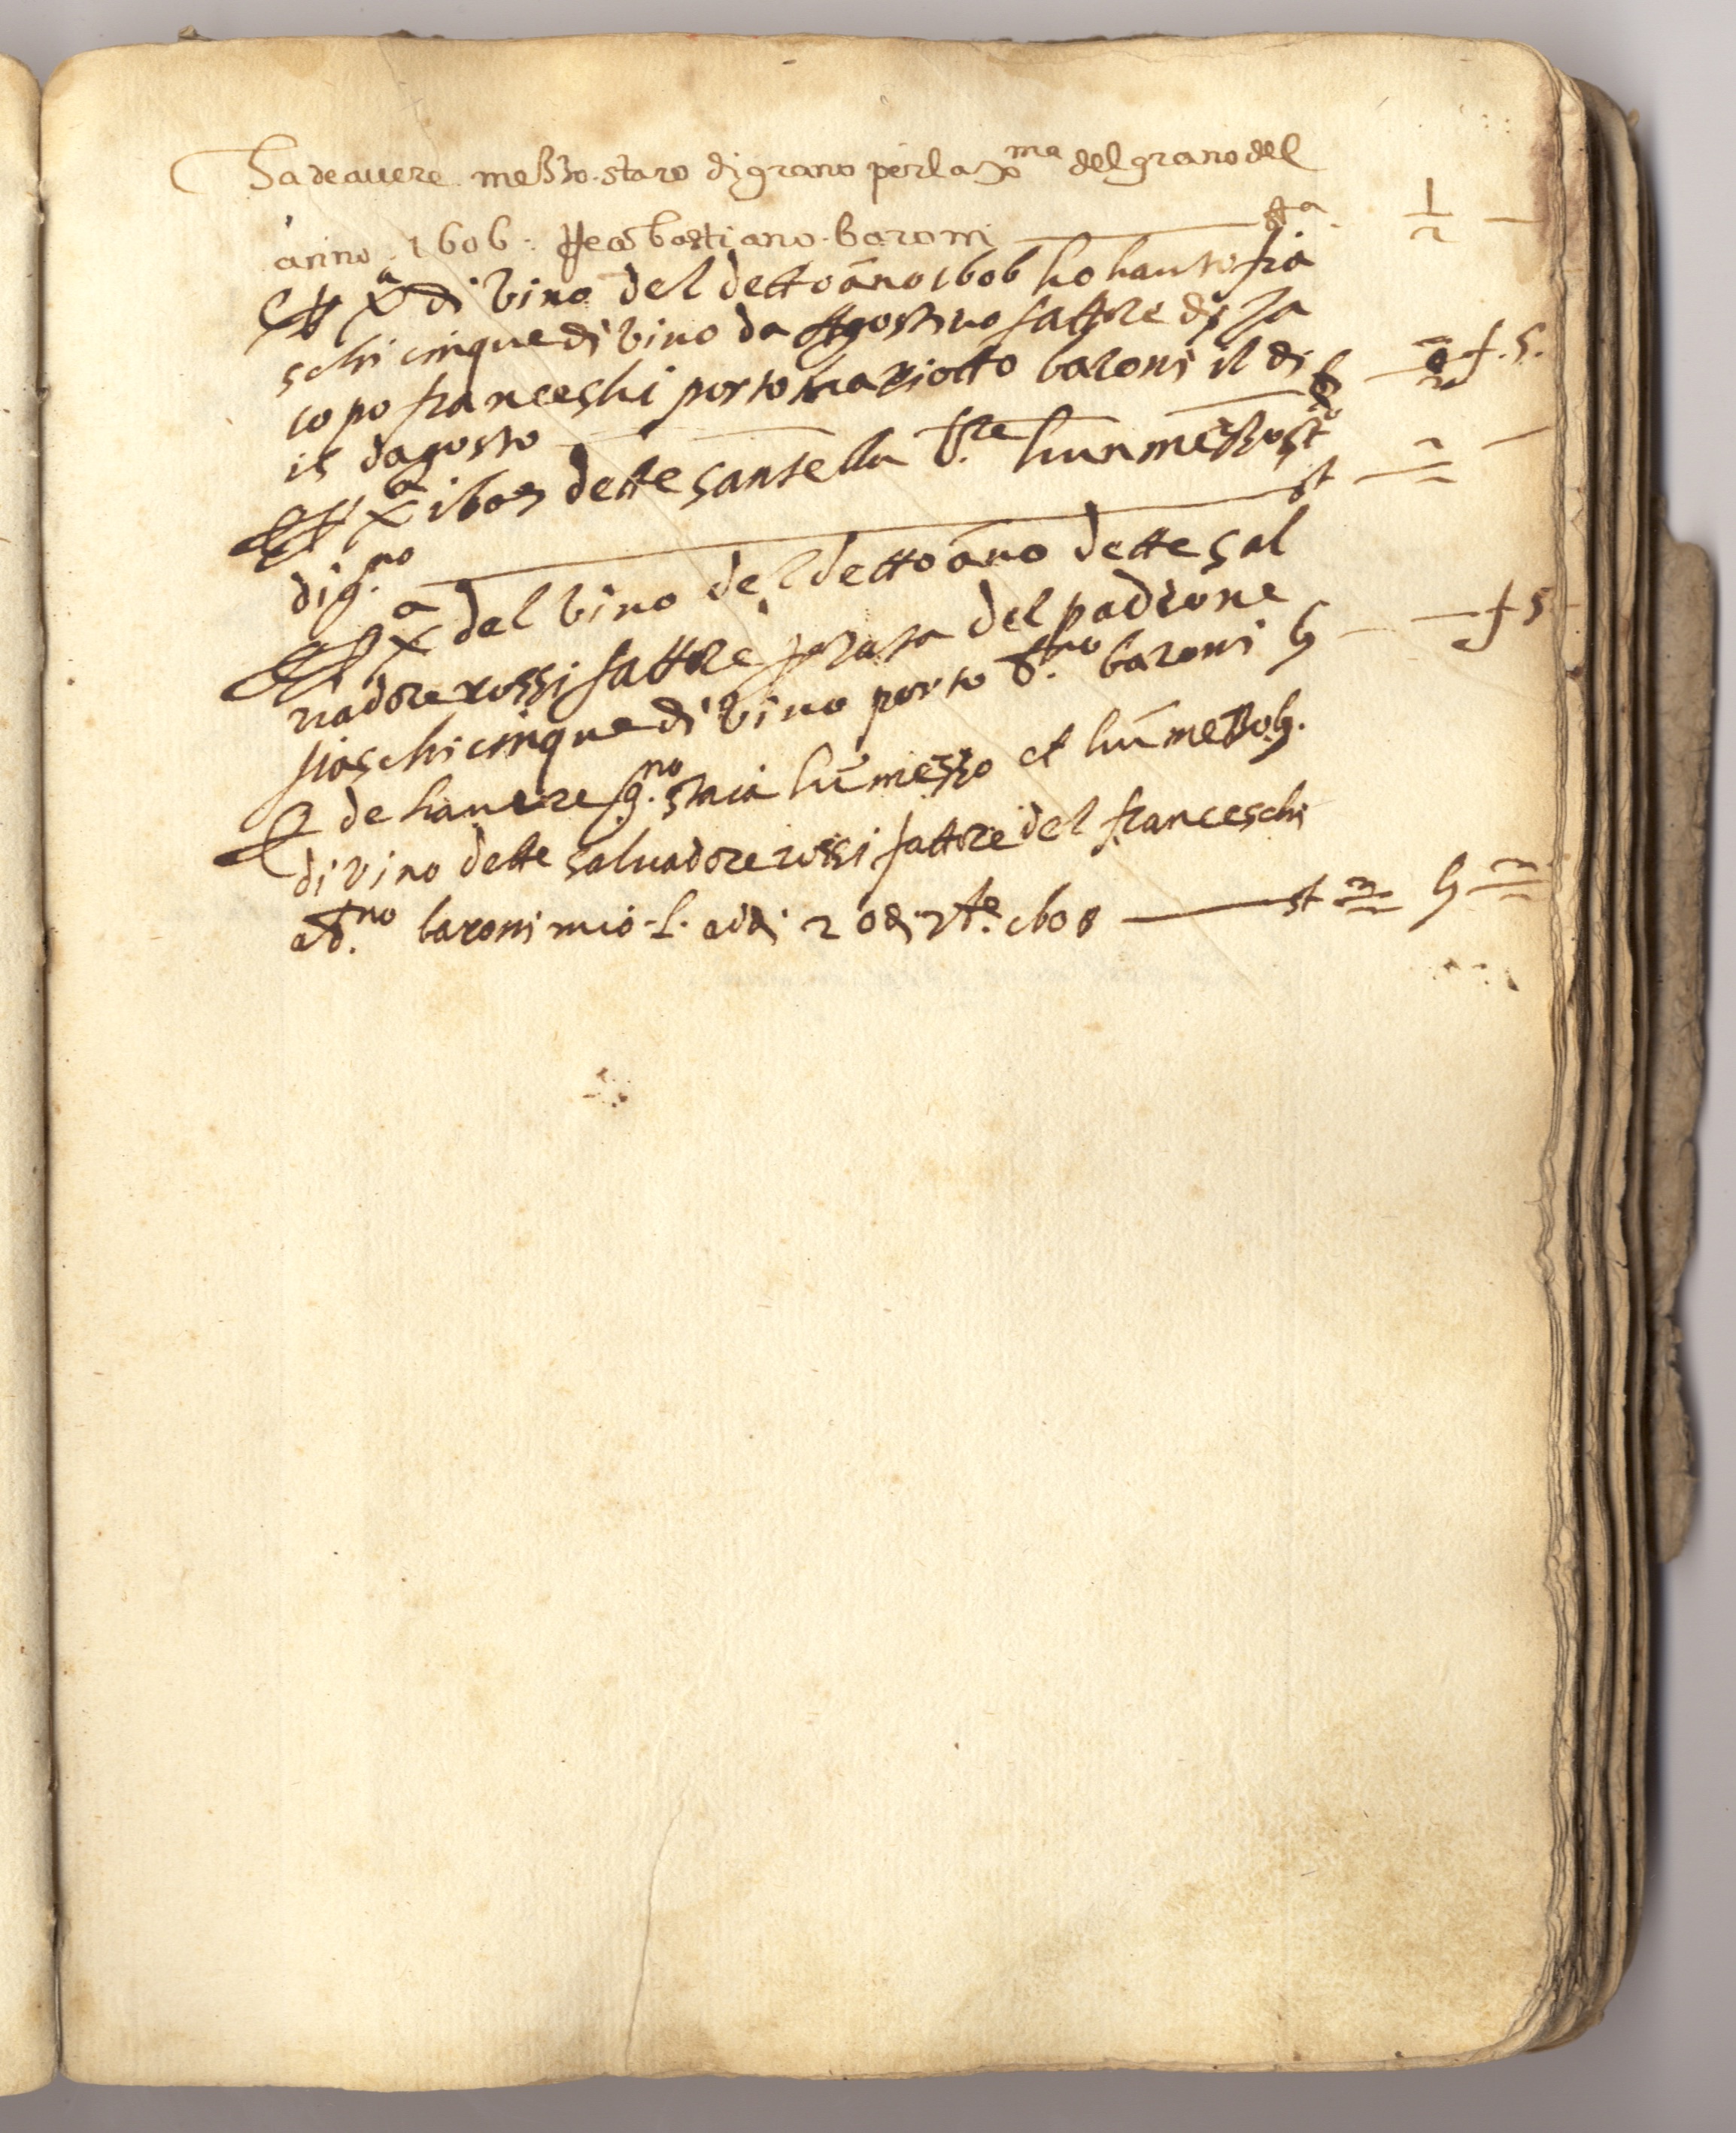 Sa de avere meßzo staro di grano per la Xma del grano del
anno 1606 : Pe bastiano baroni sta 1/2
Xa di vino del detto āno 1606 ho hauto fia
schi cinque di vino da Agostino fattore di Ja
copo franceschi porto mariotto baroni il di f. 5.
15 dagosto
Xa 1607 dette santella hun mezzo st
di g.no st
Xa del vino del detto āno dette sal
uadore rossi fattore p rata del padrone
fiaschi cinque di vino porto b.no baroni f 5
de hauere g.no staia hū mezzo et hū mezzo b.
di vino dette saluadore rossi fattore del franceschi
a b.no baroni mio f. adi 20 di 1608 st b